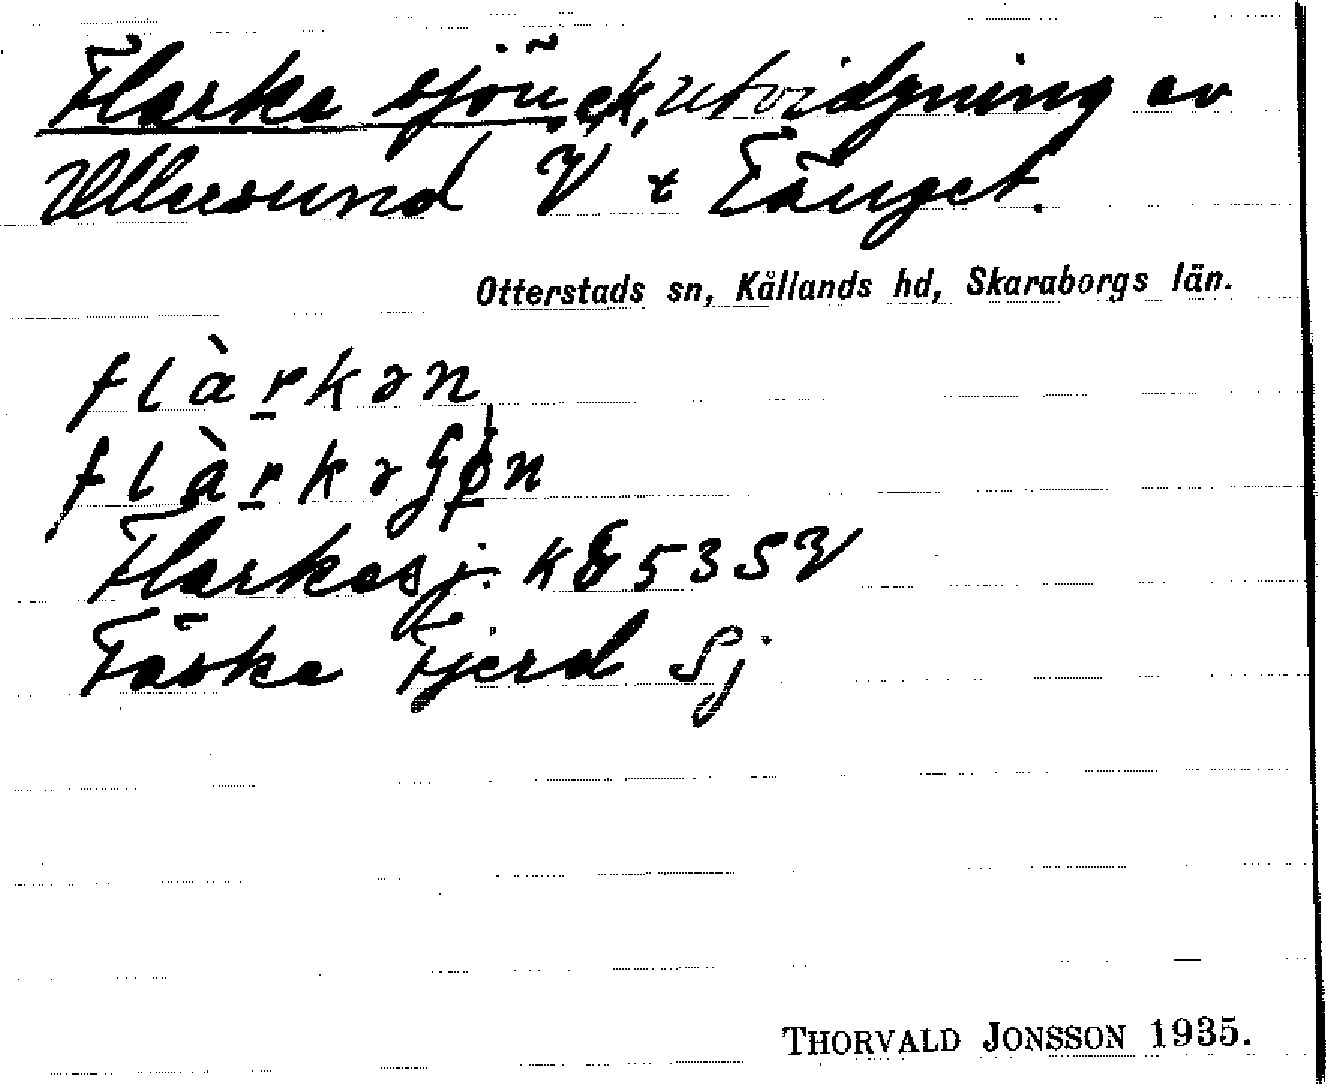 Flarka sjön, ek, utvidgning av
Ullersund V t Tånget.
Otterstads sn, Kållands hd, Skaraborgs län.
flàrkən,
flàrkəʃøn
Flarkasj. K 53 SV
Fjerd Sj
THORVALD JONSSON 1935.